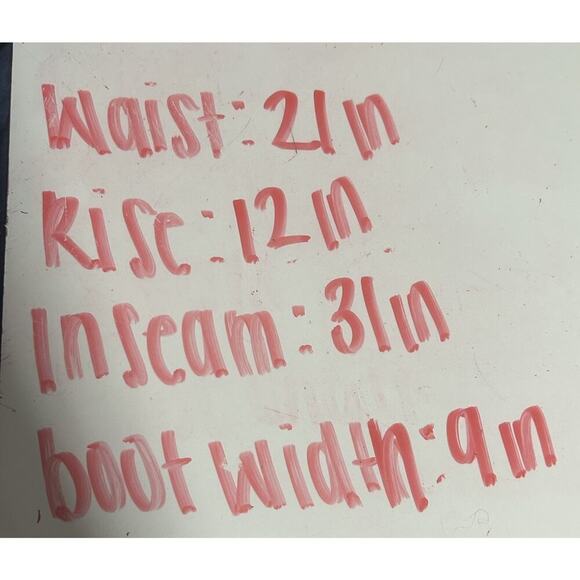 Waist: 21in
Rise: 12in
Inseam: 31in
boot width: 9in